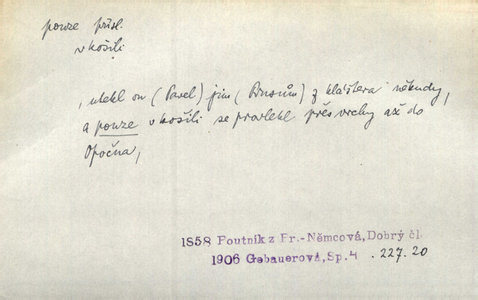 pouze přísl.
v košili
, utekl on (Pavel) jim (Prusům) z kláštera někudy,
a pouze v košili se provlekl přes vrchy až do
Opočna,
1858 Poutník z Pr.-Němcová, Dobrý čl.
1906 Gebauerová, Sp. 4 . 227. 20